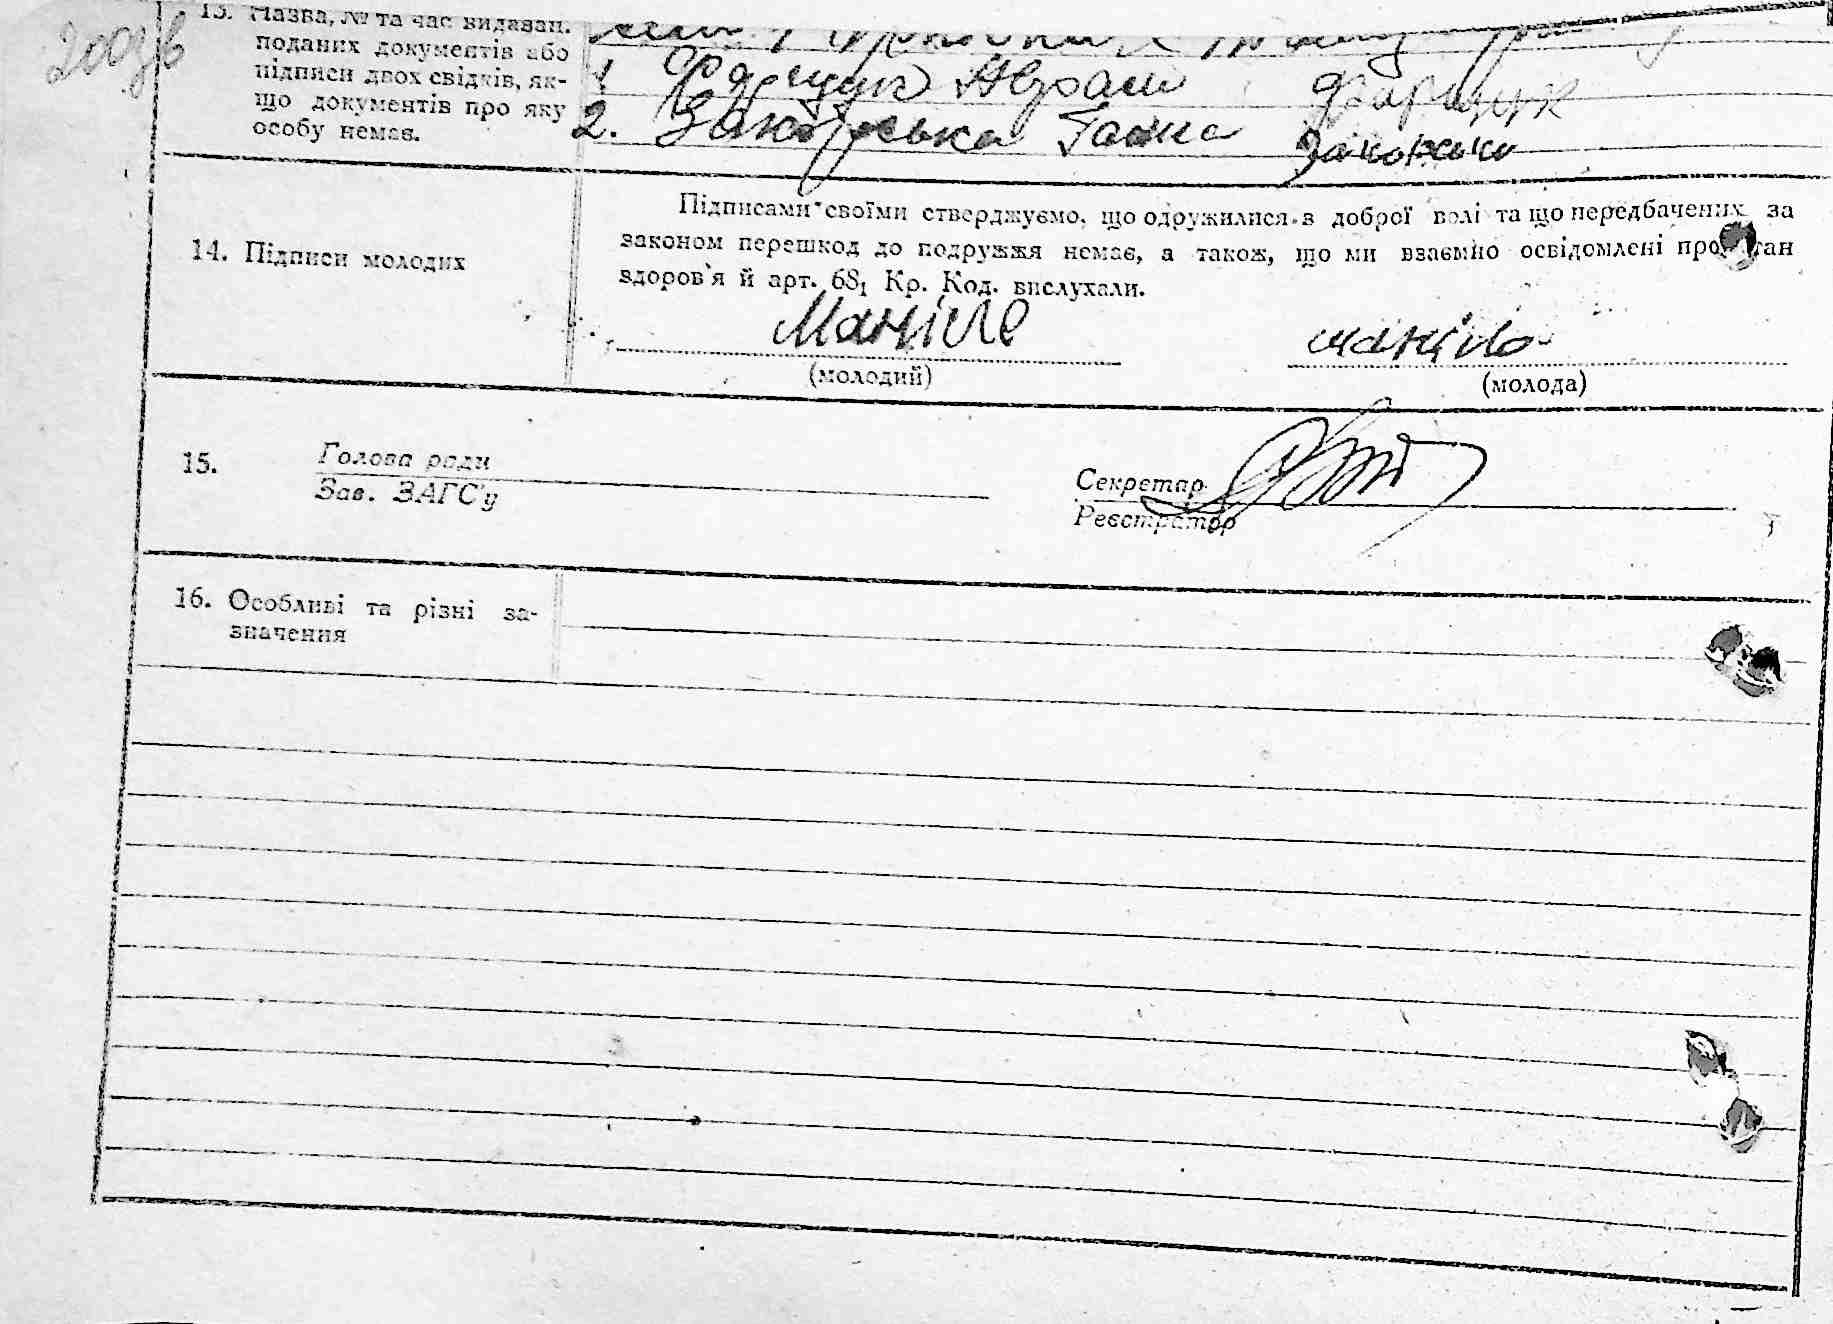 200зв
13. Назва, № та час видаван.
поданих документів або
підписи двох свідків, як-
що документів про яку
особу немає.
1 Фарщук Абрам Фарщук
2. Ганна
14. Підписи молодих
Підписами своїми стверджуємо, що одружилися з доброї волі та що передбачених за
законом перешкод до подружжя немає, а також, що ми взаємно освідомлені про стан
здоров'я й арт. 68₁ Кр. Код. вислухали.
Маніло маніло
(молодий) (молода)
15. Голова ради
Зав. ЗАГС'у
Секретар
Реєстратор
16. Особливі та різні за-
значення